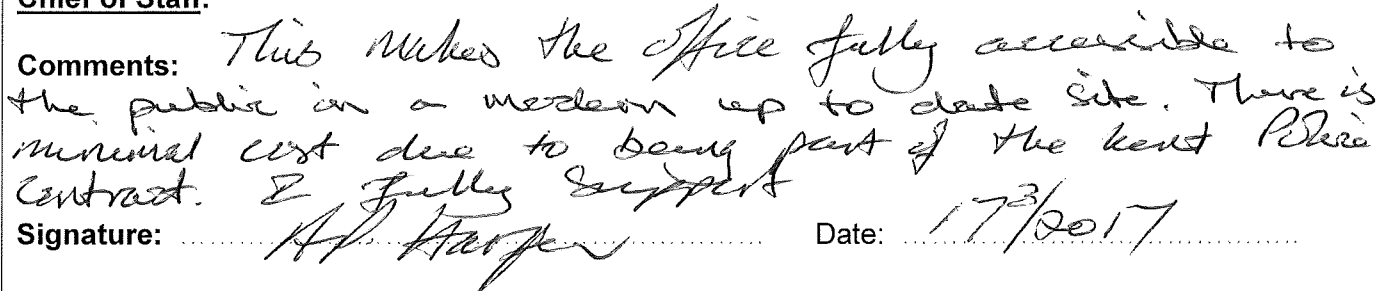 Chief of Staff:
Comments: This makes the office fully accessible to
the public in a modern up to date site. There is
minimal cost due to being part of the kent Police
contract. I fully support
Signature: AP Harper Date: 17/3/2017